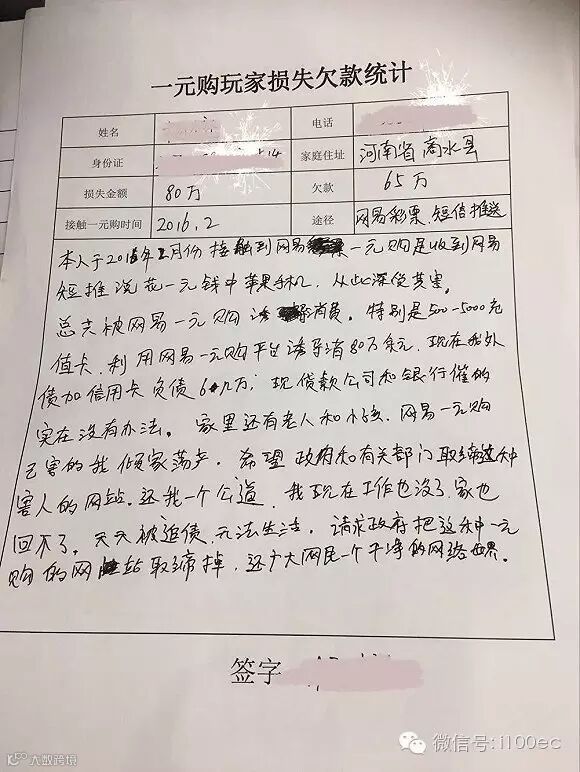 一元购玩家损失欠款统计
姓名 电话
身份证 14 家庭住址 河南省商水县
损失金额 80万 欠款 65万
接触一元购时间 2016.2 途径 网易彩票.短信推送
本人于2016年2月份接触到网易一元购是收到网易
短推说花一元钱中苹果手机,从此深受其害。
总共被网易一元购诱导消费。特别是500-5000充
值卡.利用网易一元购平台诱导消80万余元.现在我外
债加信用卡负债6几万;现贷款公司和银行催的
实在没有办法。家里还有老人和小孩.网易一元购
已害的我倾家荡产.希望政府和有关部门取缔这种
害人的网站.还我一个公道.我现在工作也没了.家也
回不了。天天被追债.无法生活.请求政府把这种一元
购的网站取缔掉,还广大网民一个干净的网络世界。
签字
微信号:i100ec
大数跨境